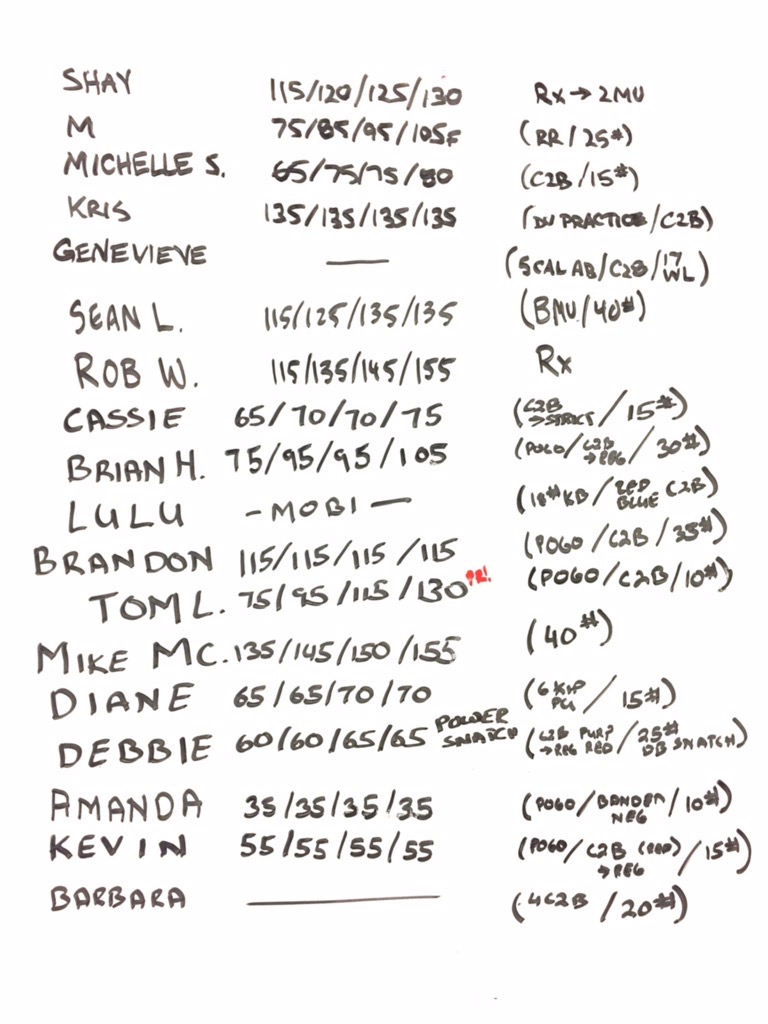 SHAY 115/120/125/130 Rx → 2MU
M 75/85/95/105F (RR/25#)
MICHELLE S. 65/75/75/80 (C2B/15#)
KRIS 135/135/135/135 (DU PRACTICE/C2B)
GENEVIEVE — (SCAL AB/C2B/17 WL)
SEAN L. 115/125/135/135 (BMU/40#)
ROB W. 115/135/145/155 Rx
CASSIE 65/70/70/75 (C2B → STRICT/15#)
BRIAN H. 75/95/95/105 (POGO/C2B → REG/30#)
LULU – MOBI — (18# KB/RED BLUE C2B)
BRANDON 115/115/115/115 (POGO/C2B/35#)
TOM L. 75/95/115/130 PR! (POGO/C2B/10#)
MIKE MC. 135/145/150/155 (40#)
DIANE 65/65/70/70 (6 KIP PU/15#)
DEBBIE 60/60/65/65 POWER SNATCH (C2B PURP → REG RED/25# DB SNATCH)
AMANDA 35/35/35/35 (POGO/BANDED NEG/10#)
KEVIN 55/55/55/55 (POGO/C2B (RED) → REG/15#)
BARBARA — (4C2B/20#)